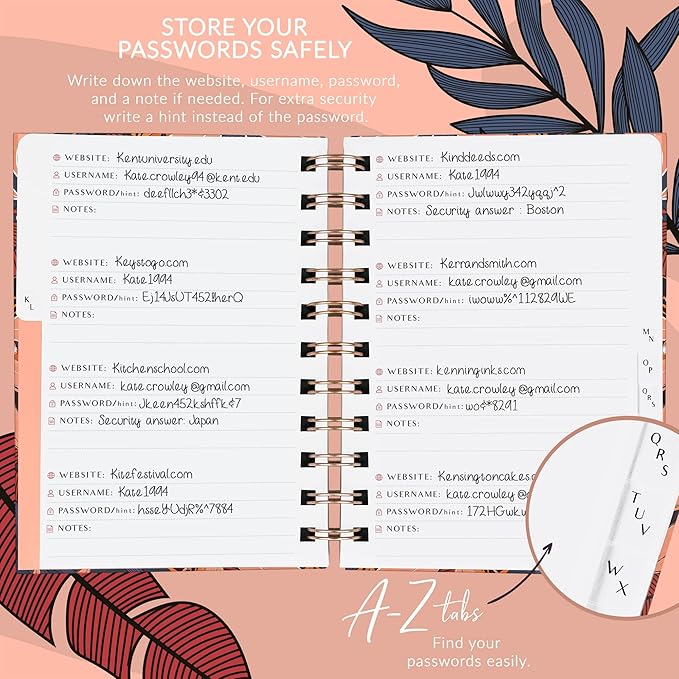 STORE YOUR
PASSWORDS SAFELY
Write down the website, username, password,
and a note if needed. For extra security
write a hint instead of the password.
WEBSITE: Kentuniversity.edu
USERNAME: Kate.crowley94@kent.edu
PASSWORD/hint: deefllch3*&3302
NOTES:
WEBSITE: Keystogo.com
USERNAME: Kate1994
PASSWORD/hint:
NOTES:
WEBSITE: Kitchenschool.com
USERNAME: kate.crowley@gmail.com
PASSWORD/hint: Jkeen452kshffk&7
NOTES: Security answer: Japan
WEBSITE: Kitefestival.com
USERNAME: Kate1994
PASSWORD/hint:
NOTES:
K
L
WEBSITE: Kinddeeds.com
USERNAME: Kate1994
PASSWORD/hint: Jwlwwy342yqqj^2
NOTES: Security answer : Boston
WEBSITE: Kerrandsmith.com
USERNAME: kate.crowley@gmail.com
PASSWORD/hint: iwoww%^112829WE
NOTES:
WEBSITE: kenninginks.com
USERNAME: kate.crowley@gmail.com
PASSWORD/hint: wo&*8291
NOTES:
WEBSITE: Kensingtoncakes.c
USERNAME: kate.crowley@g
PASSWORD/hint: 172HGwkw
NOTES:
M N
O P
Q R S
Q R S
T U V
W X
A-Z tabs
Find your
passwords easily.